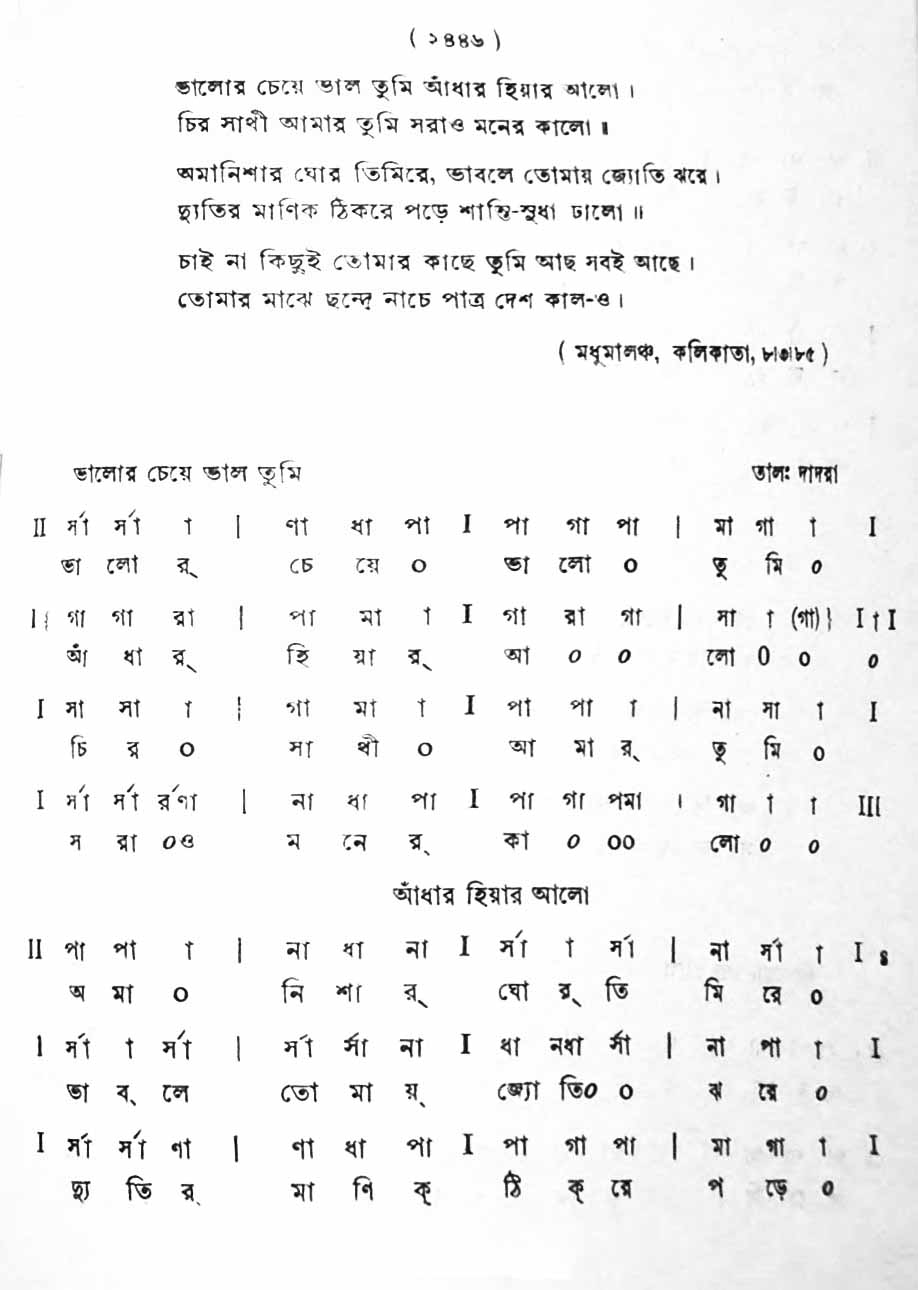 ( ২৪৪৬ )
ভালোর চেয়ে ভাল তুমি আঁধার হিয়ার আলো।
চির সাথী আমার তুমি সরাও মনের কালো॥
অমানিশার ঘোর তিমিরে, ভাবলে তোমায় জ্যোতি ঝরে।
দ্যুতির মাণিক ঠিকরে পড়ে শান্তি-সুধা ঢালো॥
চাই না কিছুই তোমার কাছে তুমি আছ সবই আছে।
তোমার মাঝে ছন্দে নাচে পাত্র দেশ কাল-ও।
( মধুমালঞ্চ, কলিকাতা, ৮।৩।৮৫ )
ভালোর চেয়ে ভাল তুমি তালঃ দাদরা
II র্সা র্সা া | ণা ধা পা I পা গা পা | মা গা া I
ভা লো র্ চে য়ে ০ ভা লো ০ তু মি ০
I{ গা গা রা | পা মা া I গা রা গা | সা া (গা)} I া I
আঁ ধা র্ হি য়া র্ আ ০ ০ লো ০ ০ ০
I সা সা া | গা মা া I পা পা া | না সা া I
চি র ০ সা থী ০ আ মা র্ তু মি ০
I র্সা র্সা র্রণা | না ধা পা I পা গা পমা । গা া া III
স রা ০ও ম নে র্ কা ০ ০০ লো ০ ০
আঁধার হিয়ার আলো
II পা পা া | না ধা না I র্সা া র্সা | না র্সা া I s
অ মা ০ নি শা র্ ঘো র্ তি মি রে ০
I র্সা া র্সা | র্সা র্সা না I ধা নধা র্সা | না পা া I
ভা ব্ লে তো মা য়্ জ্যো তি০ ০ ঝ রে ০
I র্সা র্সা ণা | ণা ধা পা I পা গা পা | মা গা া I
দ্যু তি র্ মা ণি ক্ ঠি ক্ রে প ড়ে ০